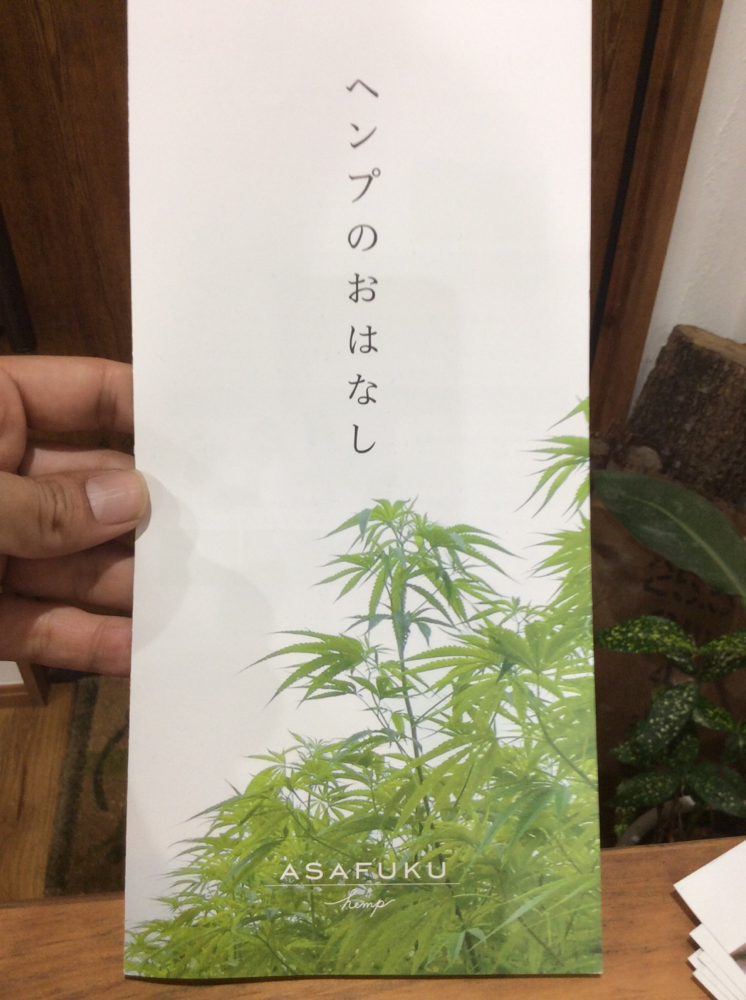 ヘンプのおはなし
ASAFUKU
hemp